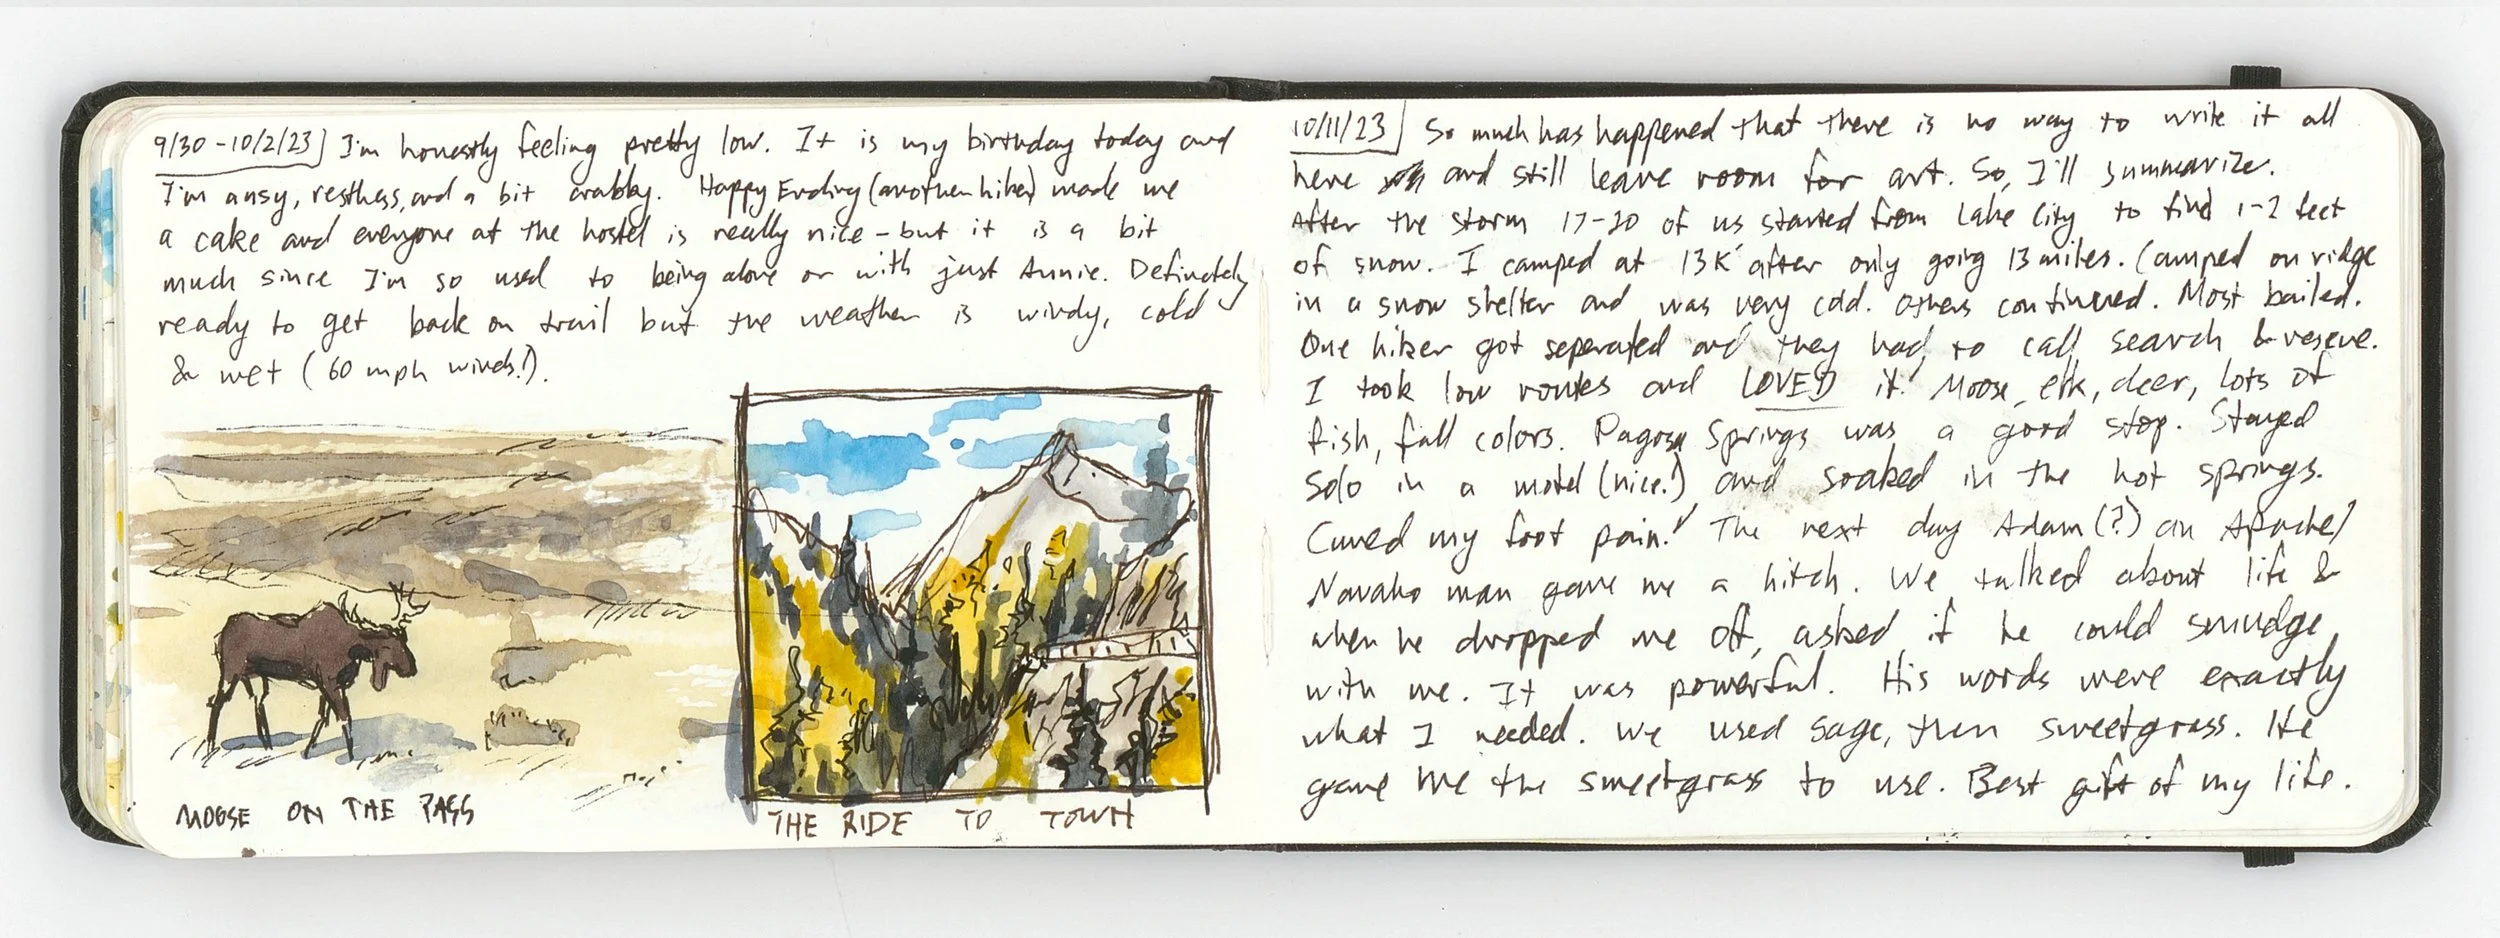 9/30 - 10/2/23 I'm honestly feeling pretty low. It is my birthday today and
I'm ansy, restless, and a bit crabby. Happy Ending (another hiker) made me
a cake and everyone at the hostel is really nice - but it is a bit
much since I'm so used to being alone or with just Annie. Definately
ready to get back on trail but the weather is windy, cold
& wet (60 mph winds!).
MOOSE ON THE PASS
THE RIDE TO TOWN
10/11/23 So much has happened that there is no way to write it all
here and still leave room for art. So, I'll summarize.
After the storm 17-20 of us started from Lake City to find 1-2 feet
of snow. I camped at 13K' after only going 13 miles. Camped on ridge
in a snow shelter and was very cold. Others continued. Most bailed.
One hiker got seperated and they had to call search & rescue.
I took low routes and LOVED it! Moose, elk, deer, lots of
fish, fall colors. Pagosa Springs was a good stop. Stayed
solo in a motel (nice!) and soaked in the hot springs.
Cured my foot pain! The next day Adam (?) an Apache/
Navaho man gave me a hitch. We talked about life &
when he dropped me off, asked if he could smudge
with me. It was powerful. His words were exactly
what I needed. We used sage, then sweetgrass. He
gave me the sweetgrass to use. Best gift of my life.